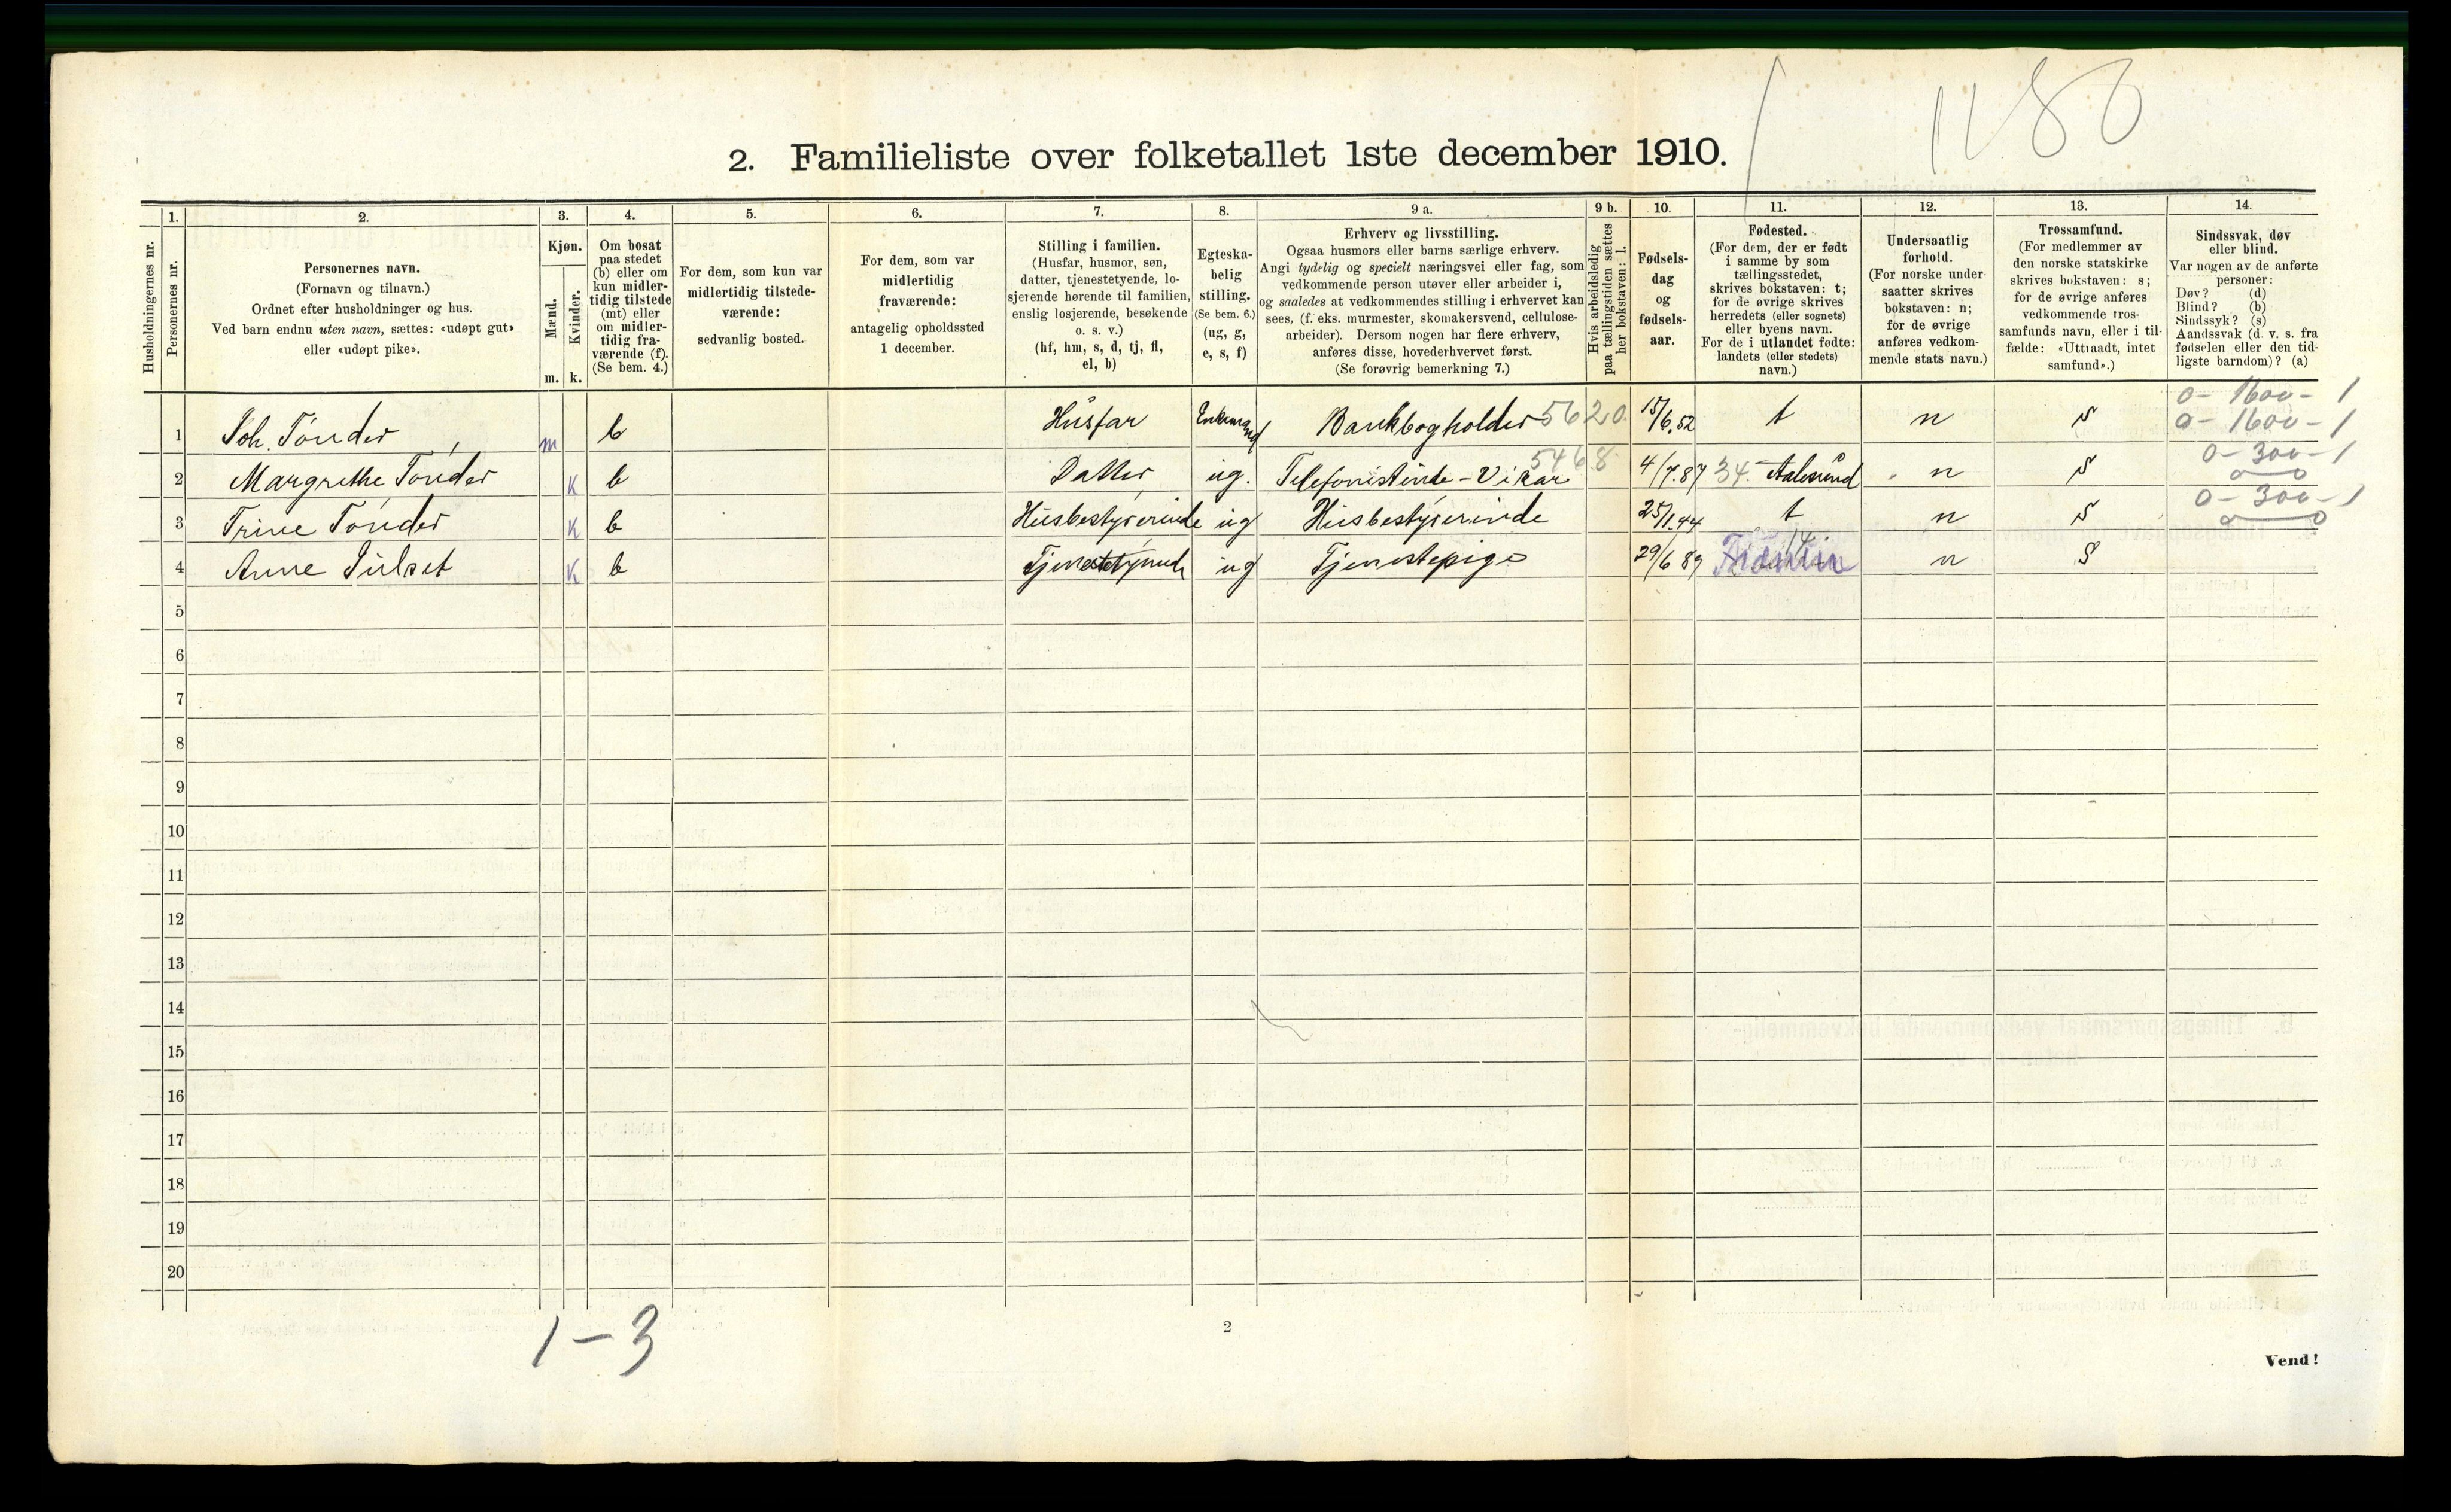 1180
2. Familieliste over folketallet 1ste december 1910.
1. 2. 3. 4. 5. 6. 7. 8. 9 a. 9 b. 10. 11. 12. 13. 14.
Husholdningernes nr.
Personernes nr.
Personernes navn.
(Fornavn og tilnavn.)
Ordnet efter husholdninger og hus.
Ved barn endnu uten navn, sættes: «udøpt gut»
eller «udøpt pike».
Kjøn.
Mænd.
Kvinder.
m. k.
Om bosat
paa stedet
(b) eller om
kun midler-
tidig tilstede
(mt) eller
om midler-
tidig fra-
værende (f).
(Se bem. 4.)
For dem, som kun var
midlertidig tilstede-
værende:
sedvanlig bosted.
For dem, som var
midlertidig
fraværende:
antagelig opholdssted
1 december.
Stilling i familien.
(Husfar, husmor, søn,
datter, tjenestetyende, lo-
sjerende hørende til familien,
enslig losjerende, besøkende
o. s. v.)
(hf, hm, s, d, tj, fl,
el, b)
Egteska-
belig
stilling.
(Se bem. 6.)
(ug, g,
e, s, f)
Erhverv og livsstilling.
Ogsaa husmors eller barns særlige erhverv.
Angi tydelig og specielt næringsvei eller fag, som
vedkommende person utøver eller arbeider i,
og saaledes at vedkommendes stilling i erhvervet kan
sees, (f. eks. murmester, skomakersvend, cellulose-
arbeider). Dersom nogen har flere erhverv,
anføres disse, hovederhvervet først.
(Se forøvrig bemerkning 7.)
Hvis arbeidsledig
paa tællingstiden sættes
her bokstaven: l.
Fødsels-
dag
og
fødsels-
aar.
Fødested.
(For dem, der er født
i samme by som
tællingsstedet,
skrives bokstaven: t;
for de øvrige skrives
herredets (eller sognets)
eller byens navn.
For de i utlandet fødte:
landets (eller stedets)
navn.)
Undersaatlig
forhold.
(For norske under-
saatter skrives
bokstaven: n;
for de øvrige
anføres vedkom-
mende stats navn.)
Trossamfund.
(For medlemmer av
den norske statskirke
skrives bokstaven: s;
for de øvrige anføres
vedkommende tros-
samfunds navn, eller i til-
fælde: «Uttraadt, intet
samfund».)
Sindssvak, døv
eller blind.
Var nogen av de anførte
personer:
Døv? (d)
Blind? (b)
Sindssyk? (s)
Aandssvak (d. v. s. fra
fødselen eller den tid-
ligste barndom)? (a)
0- 1600- 1
1 Joh. Tønder m b Husfar Enkemand Bankbogholder 5620. 15/6.52 t n s 0- 1600-1
0- 300-1
2 Margrethe Tønder k b Datter ug. Telefonistinde-Vikar 5468 4/7.87 34. Aalesund n s
0- 300-1
3 Trine Tønder k b Husbestyrerinde ug Husbestyrerinde 25/1.44 t n s
4 Anne k b Tjenestetyende ug Tjenestepige 29/6 89 n s
5
6
7
8
9
10
11
12
13
14
15
16
17
18
19
20
1-3
2
Vend!